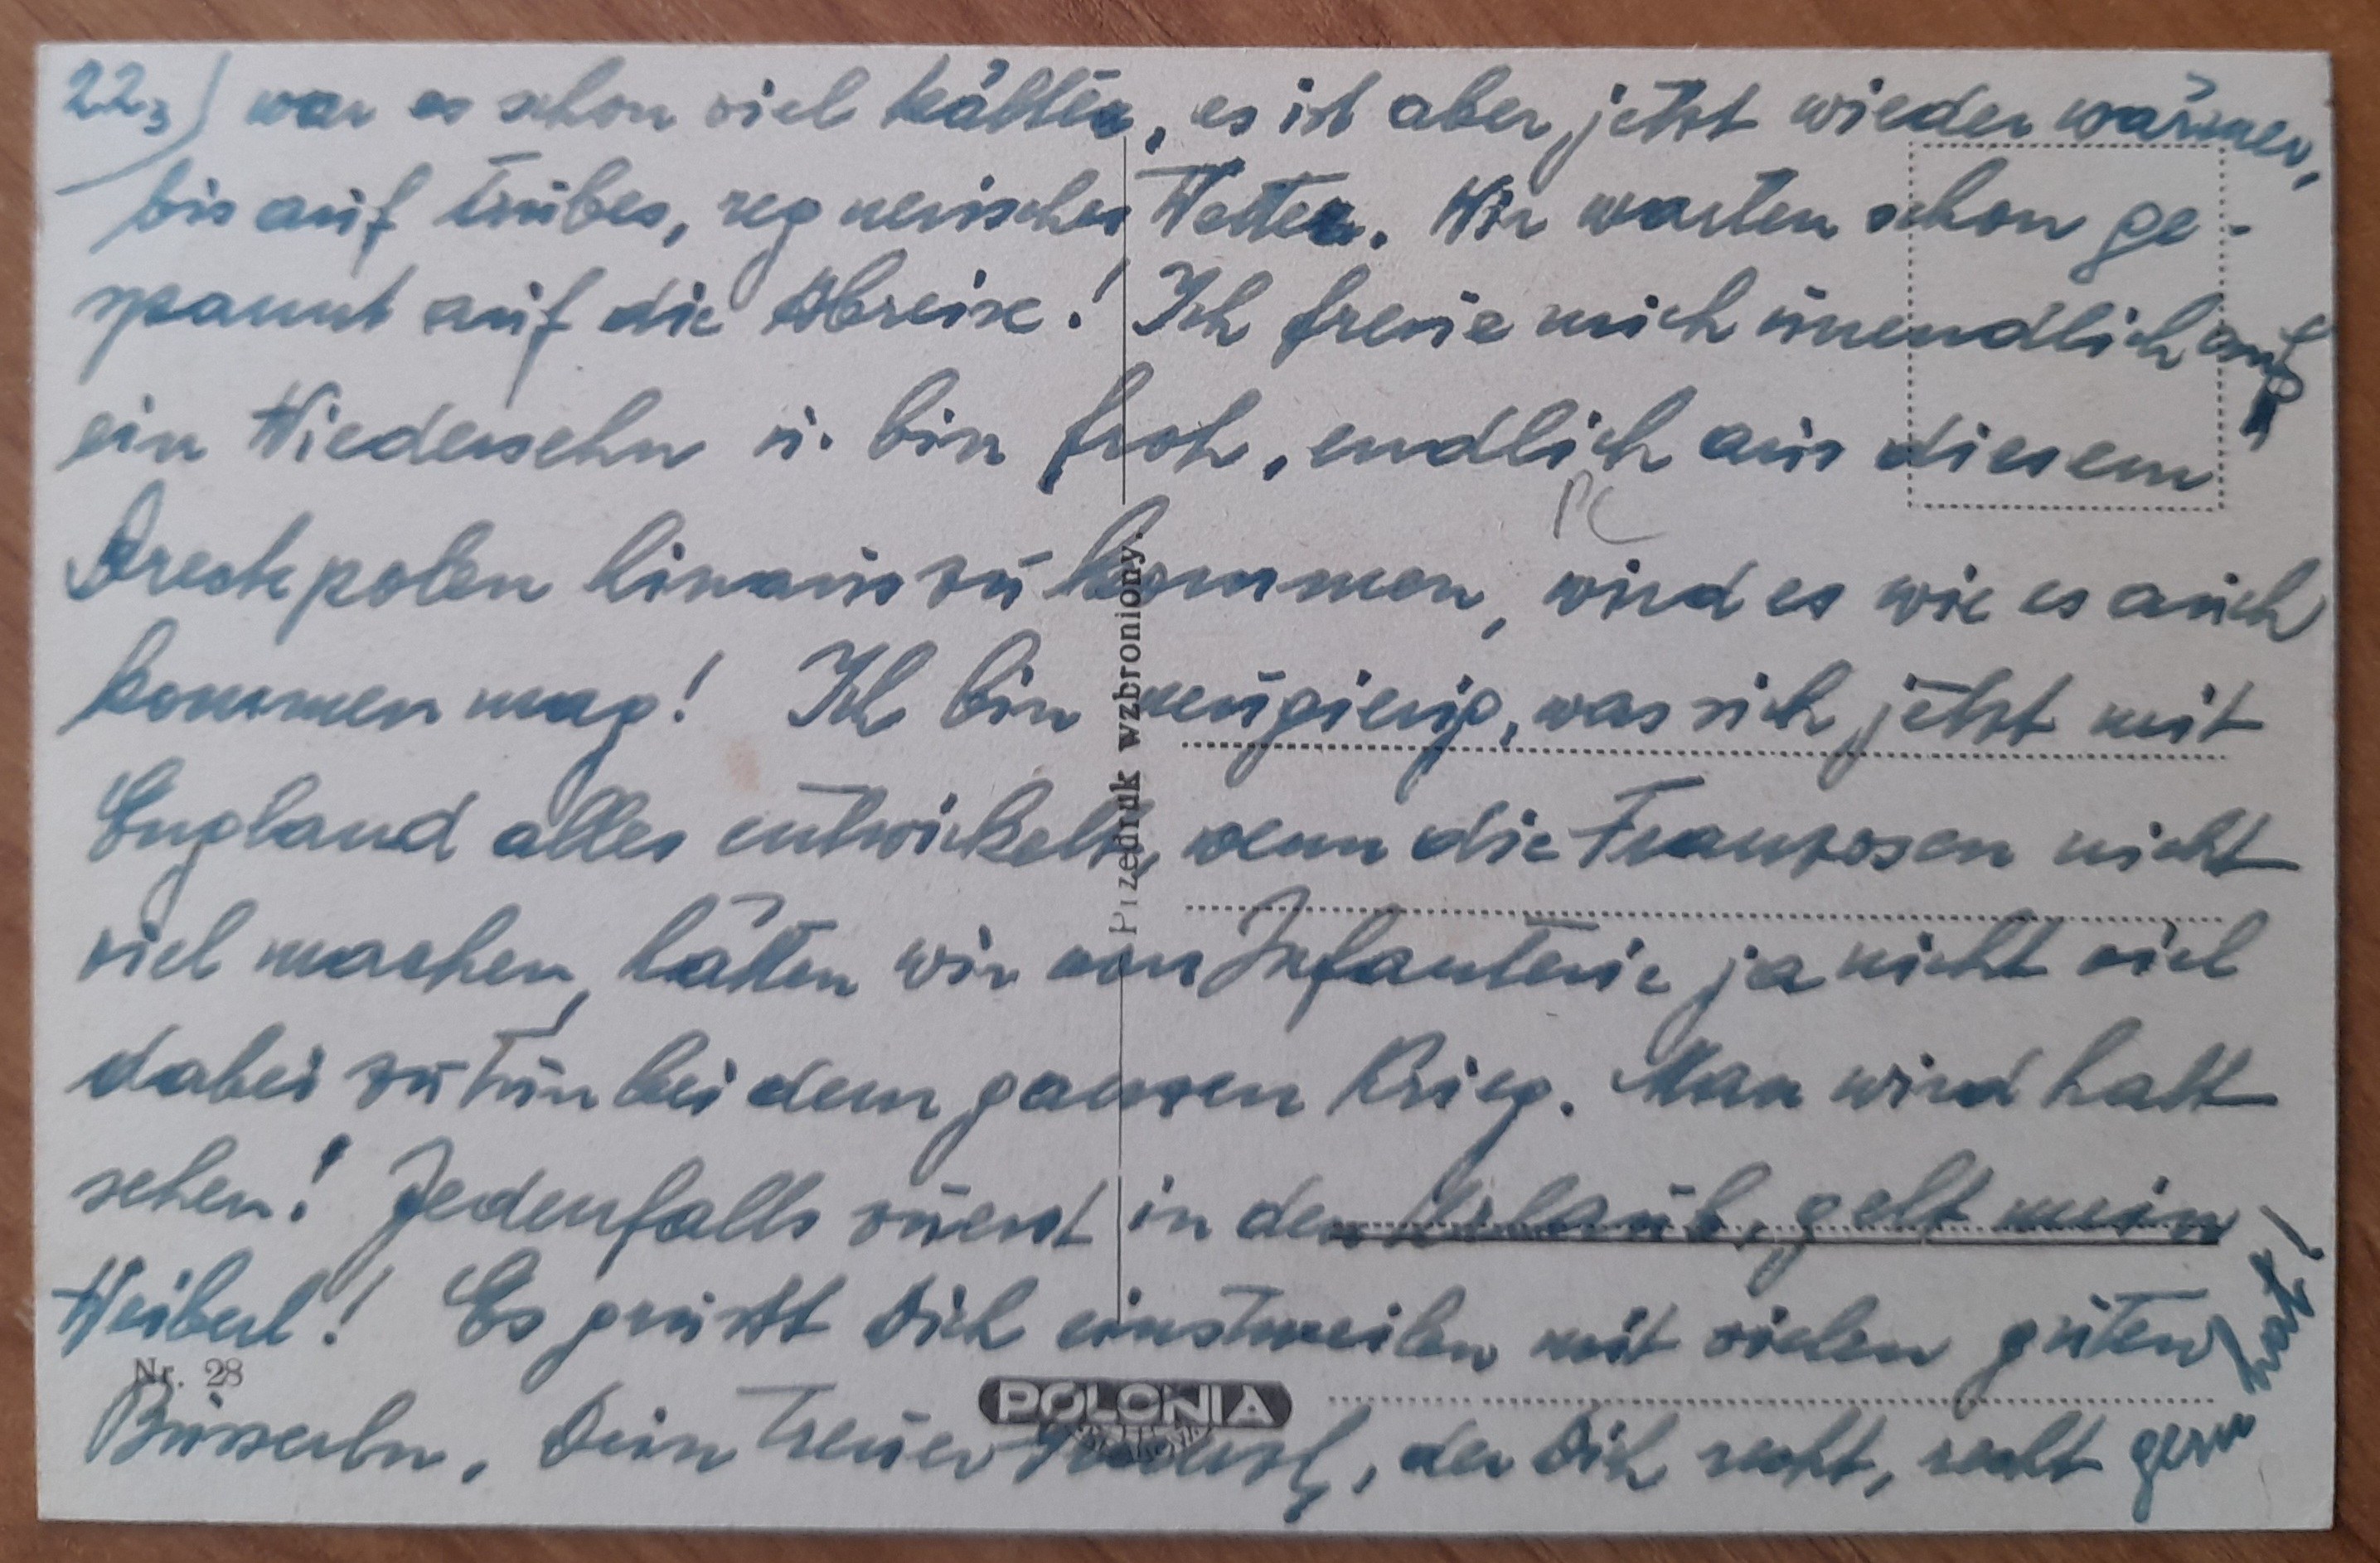 22₃) war es schon viel kälter, es ist aber jetzt wieder wärmer,
bis auf trübes, regnerisches Wetter. Wir warten schon ge-
spannt auf die Abreise! Ich freue mich unendlich auf
ein Wiedersehn u. bin froh, endlich aus diesem
PC
Dreckpolen hinauszukommen, wird es wie es auch
kommen mag! Ich bin neugierig, was sich jetzt mit
England alles entwickelt, wenn die Franzosen nicht
viel machen, hätten wir von Infanterie ja nicht viel
dabei zu tun bei dem ganzen Krieg. Man wird halt
sehen! Jedenfalls zuerst in den Urlaub, gelt mein
Weiberl! Es grüsst Dich einstweilen mit vielen guten
Busserln, Dein treuer, der Dich recht, recht gern hat!
Przedruk wzbroniony.
Nr. 28
POLONIA